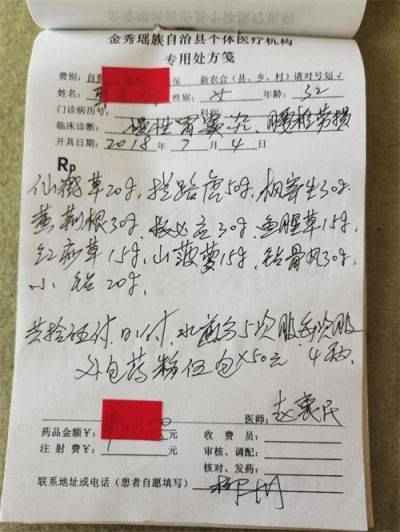 金秀瑶族自治县个体医疗机构
专用处方笺
费别：自费 新农合(县、乡、村)请对号划√
姓名： 性别：女 年龄：32
门诊病历号： 科别：
临床诊断：慢性胃窦炎、腰椎劳损
开具日期：2018年7月4日
Rp
仙鹤草20g，拦路虎50g，桐寄生30g，
黄荆根30g，救必应30g，鱼腥草15g，
15g，山菠萝15g，钻骨风30g，
小钻20g，
共拾伍付，日1付，水煎分5次服
外包药粉伍包×50元
医师：赵惠民
药品金额¥： 元 收费员：
注射费¥： 元 审核、调配：
核对、发药：
联系地址或电话(患者自愿填写) 柳州